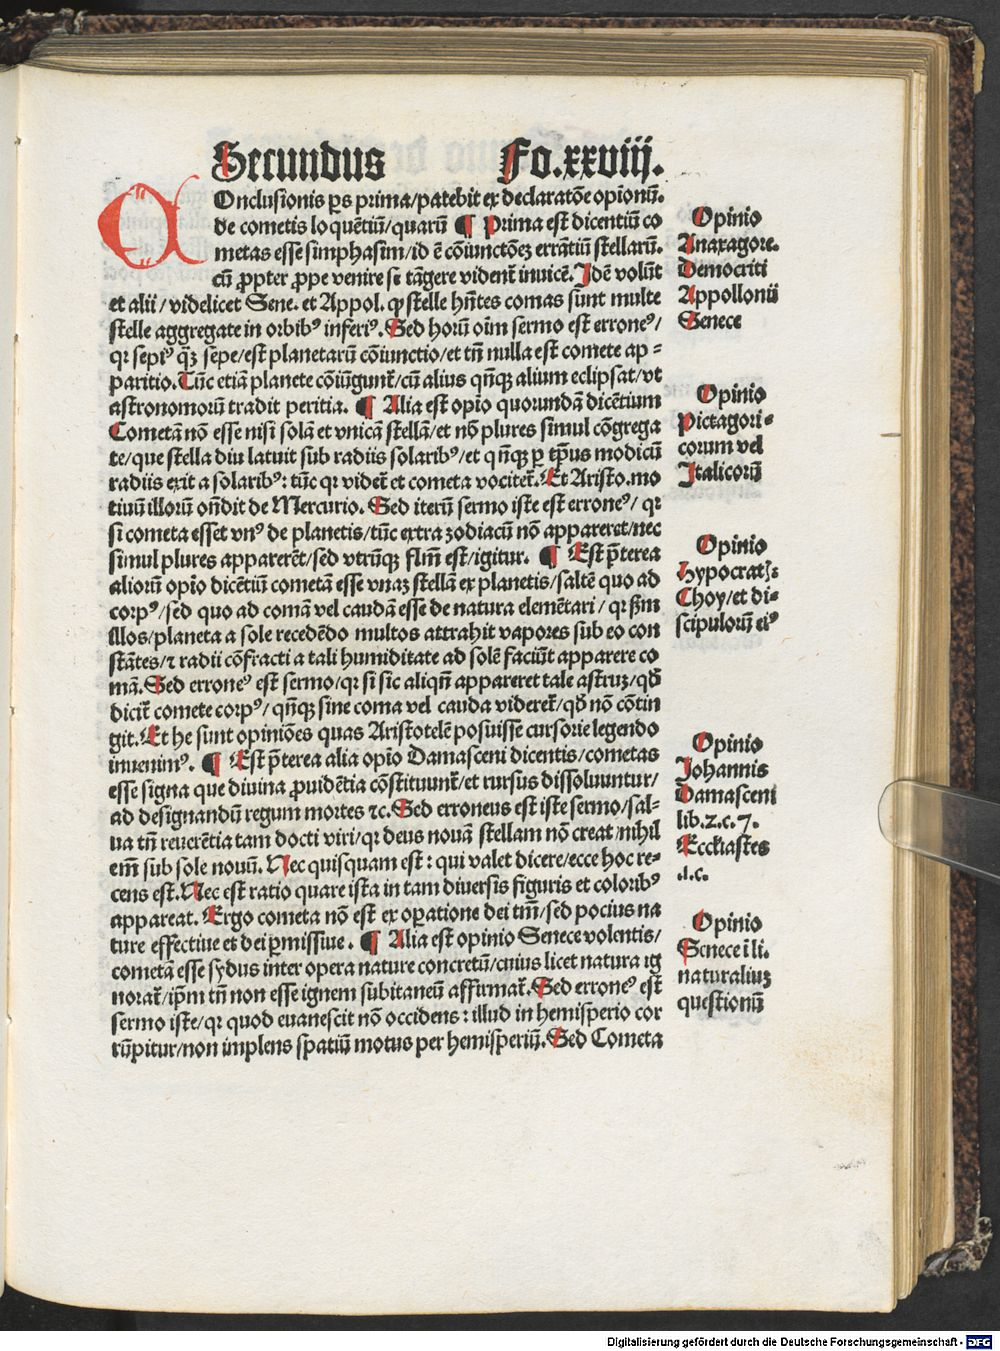 Secundus Fo.xxviij.
COnclusionis ps prima/patebit ex declaratõe opionũ.
de cometis loquẽtiũ/quarũ ¶ Prima est dicentiũ co
metas esse simphasim/id ẽ cõiunctõeꝫ errãtiũ stellarũ.
cũ propter prope venire se tãgere vident᷑ inuicẽ. Idẽ volũt
et alii/videlicet Sene. et Appol. ꝙ stelle hñtes comas sunt multe
stelle aggregate in orbibꝰ inferiꝰ. Sed horũ oĩm sermo est erroneꝰ/
qꝛ sepiꝰ q̃ꝫ sepe/est planetarũ cõiunctio/et tñ nulla est comete ap-
paritio. Tũc etiã planete cõiũgunt᷑/cũ alius qñqꝫ alium eclipsat/vt
astronomorũ tradit peritia. ¶ Alia est opio quorundã dicẽtium
Cometã nõ esse nisi solã et vnicã stellã/et nõ plures simul cõgrega
te/que stella diu latuit sub radiis solaribꝰ/et qñqꝫ ꝑ tp̃us modicũ
radiis exit a solaribꝰ: tũc qꝛ videt᷑ et cometa vocitet᷑. Et Aristo. mo
tiuũ illorũ oñdit de Mercurio. Sed iterũ sermo iste est erroneꝰ/ qꝛ
si cometa esset vnꝰ de planetis/tũc extra zodiacũ nõ appareret/nec
simul plures apparerẽt/sed vtrũqꝫ flm̃ est/igitur. ¶ Est p̃terea
aliorũ opio dicẽtiũ cometã esse vnaꝫ stellã ex planetis/saltẽ quo ad
corpꝰ/sed quo ad comã vel caudã esse de natura elemẽtari/ qꝛ ẜm
illos/planeta a sole recedẽdo multos attrahit vapores sub eo con
stãtes/⁊ radii cõfracti a tali humiditate ad solẽ faciũt apparere co
mã. Sed erroneꝰ est sermo/qꝛ si sic aliqñ appareret tale astruꝫ/qð
dicit᷑ comete corpꝰ/ qñqꝫ sine coma vel cauda videret᷑/qð nõ cõtin
git. Et he sunt opiniões quas Aristotelẽ posuisse cursorie legendo
inuenimꝰ. ¶ Est p̃terea alia opio Damasceni dicentis/cometas
esse signa que diuina ꝓuidẽtia cõstituunt᷑/et rursus dissoluuntur/
ad designandũ regum mortes ⁊c. Sed erroneus est iste sermo/sal-
ua tñ reuerẽtia tam docti viri/qꝛ deus nouã stellam nõ creat/nihil
em̃ sub sole nouũ. Nec quisquam est: qui valet dicere/ecce hoc re-
cens est. Nec est ratio quare ista in tam diuersis figuris et coloribꝰ
appareat. Ergo cometa nõ est ex oꝑatione dei tm̃/sed pocius na
ture effectiue et dei ꝑmissiue. ¶ Alia est opinio Senece volentis/
cometã esse sydus inter opera nature concretũ/cuius licet natura ig
norat᷑/ip̃m tñ non esse ignem subitaneũ affirmat᷑. Sed erroneꝰ est
sermo iste/qꝛ quod euanescit nõ occidens: illud in hemisperio cor
rũpitur/non implens spatiũ motus per hemisperiũ. Sed Cometa
Opinio
Anaxagore.
Democriti
Appollonii
Senece
Opinio
Pictagori-
corum vel
Italicorũ
Opinio
hypocratꝭ:
Choy/et di-
scipulorũ eiꝰ
Opinio
Johannis
Damasceni
lib.2.c.7.
Ecclĩastes
.1.c.
Opinio
Senece ĩ li.
naturaliuꝫ
questionũ
Digitalisierung gefördert durch die Deutsche Forschungsgemeinschaft - DFG